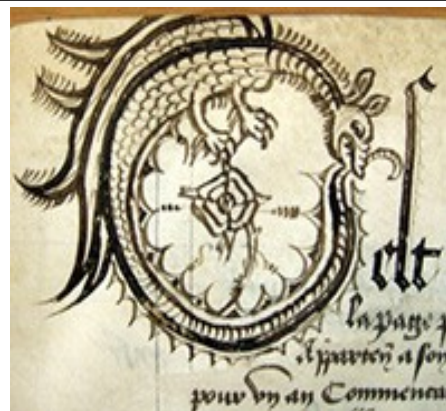 Cest
la page
Apparteñ a son
pour vng an Commenca